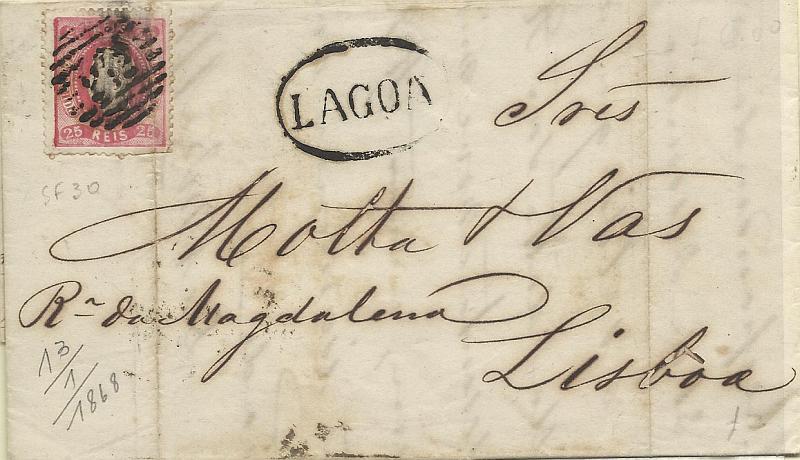 25 REIS 25
LAGOA
Snrs
Motta & Vas
Rª da Magdalena
Lisboa
SF 30
13/1/1868